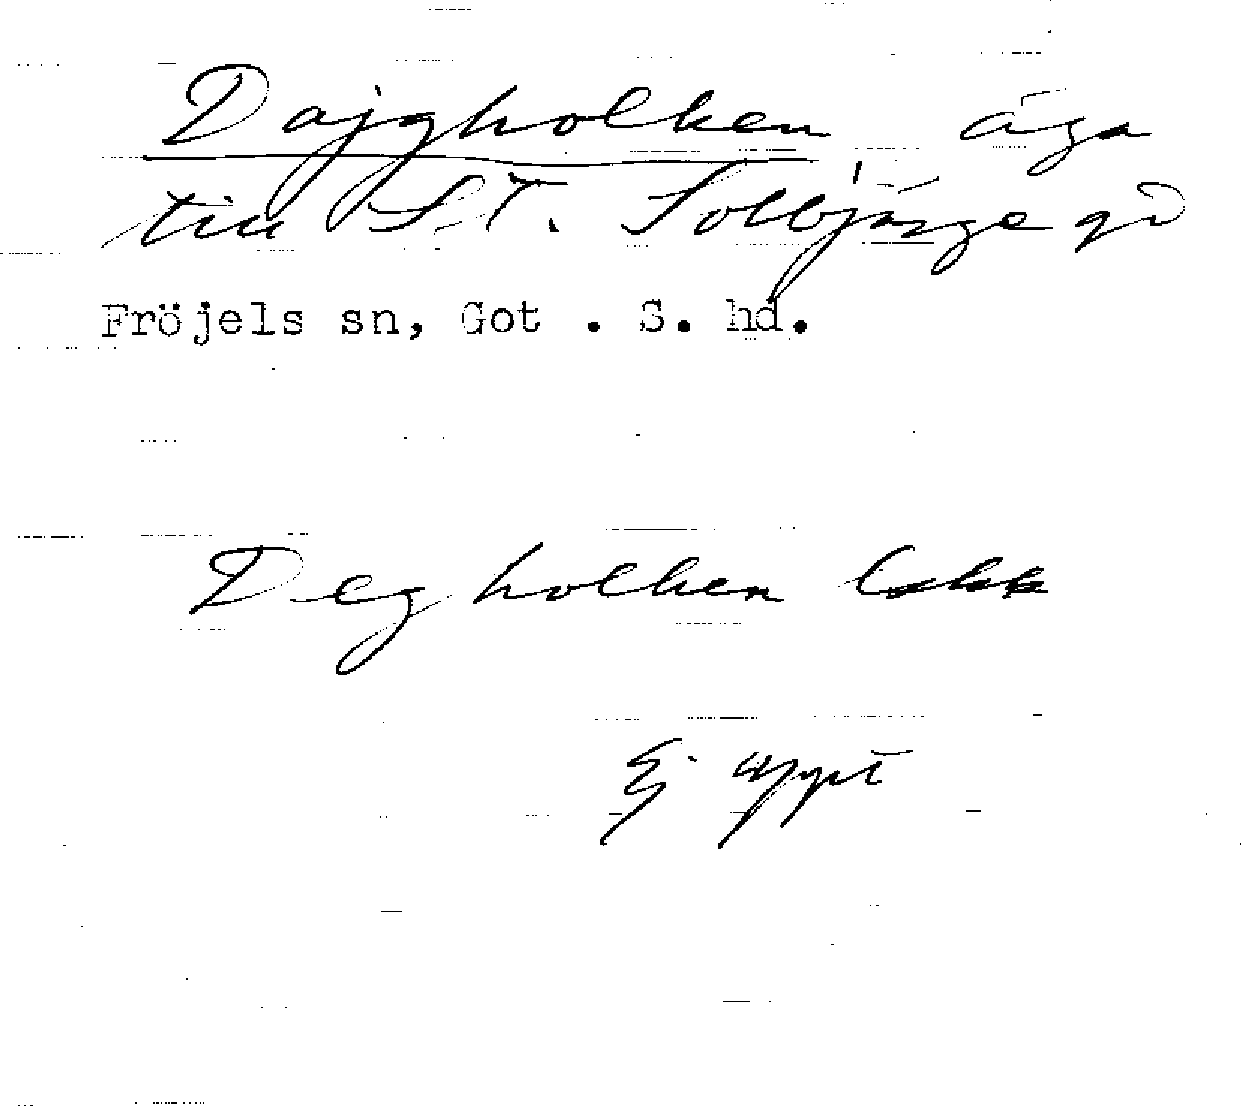 Dajgholken, äga
till ST. Solbjärge gd
Fröjels sn, Got . S. hd.
Degholken
Ej uppt